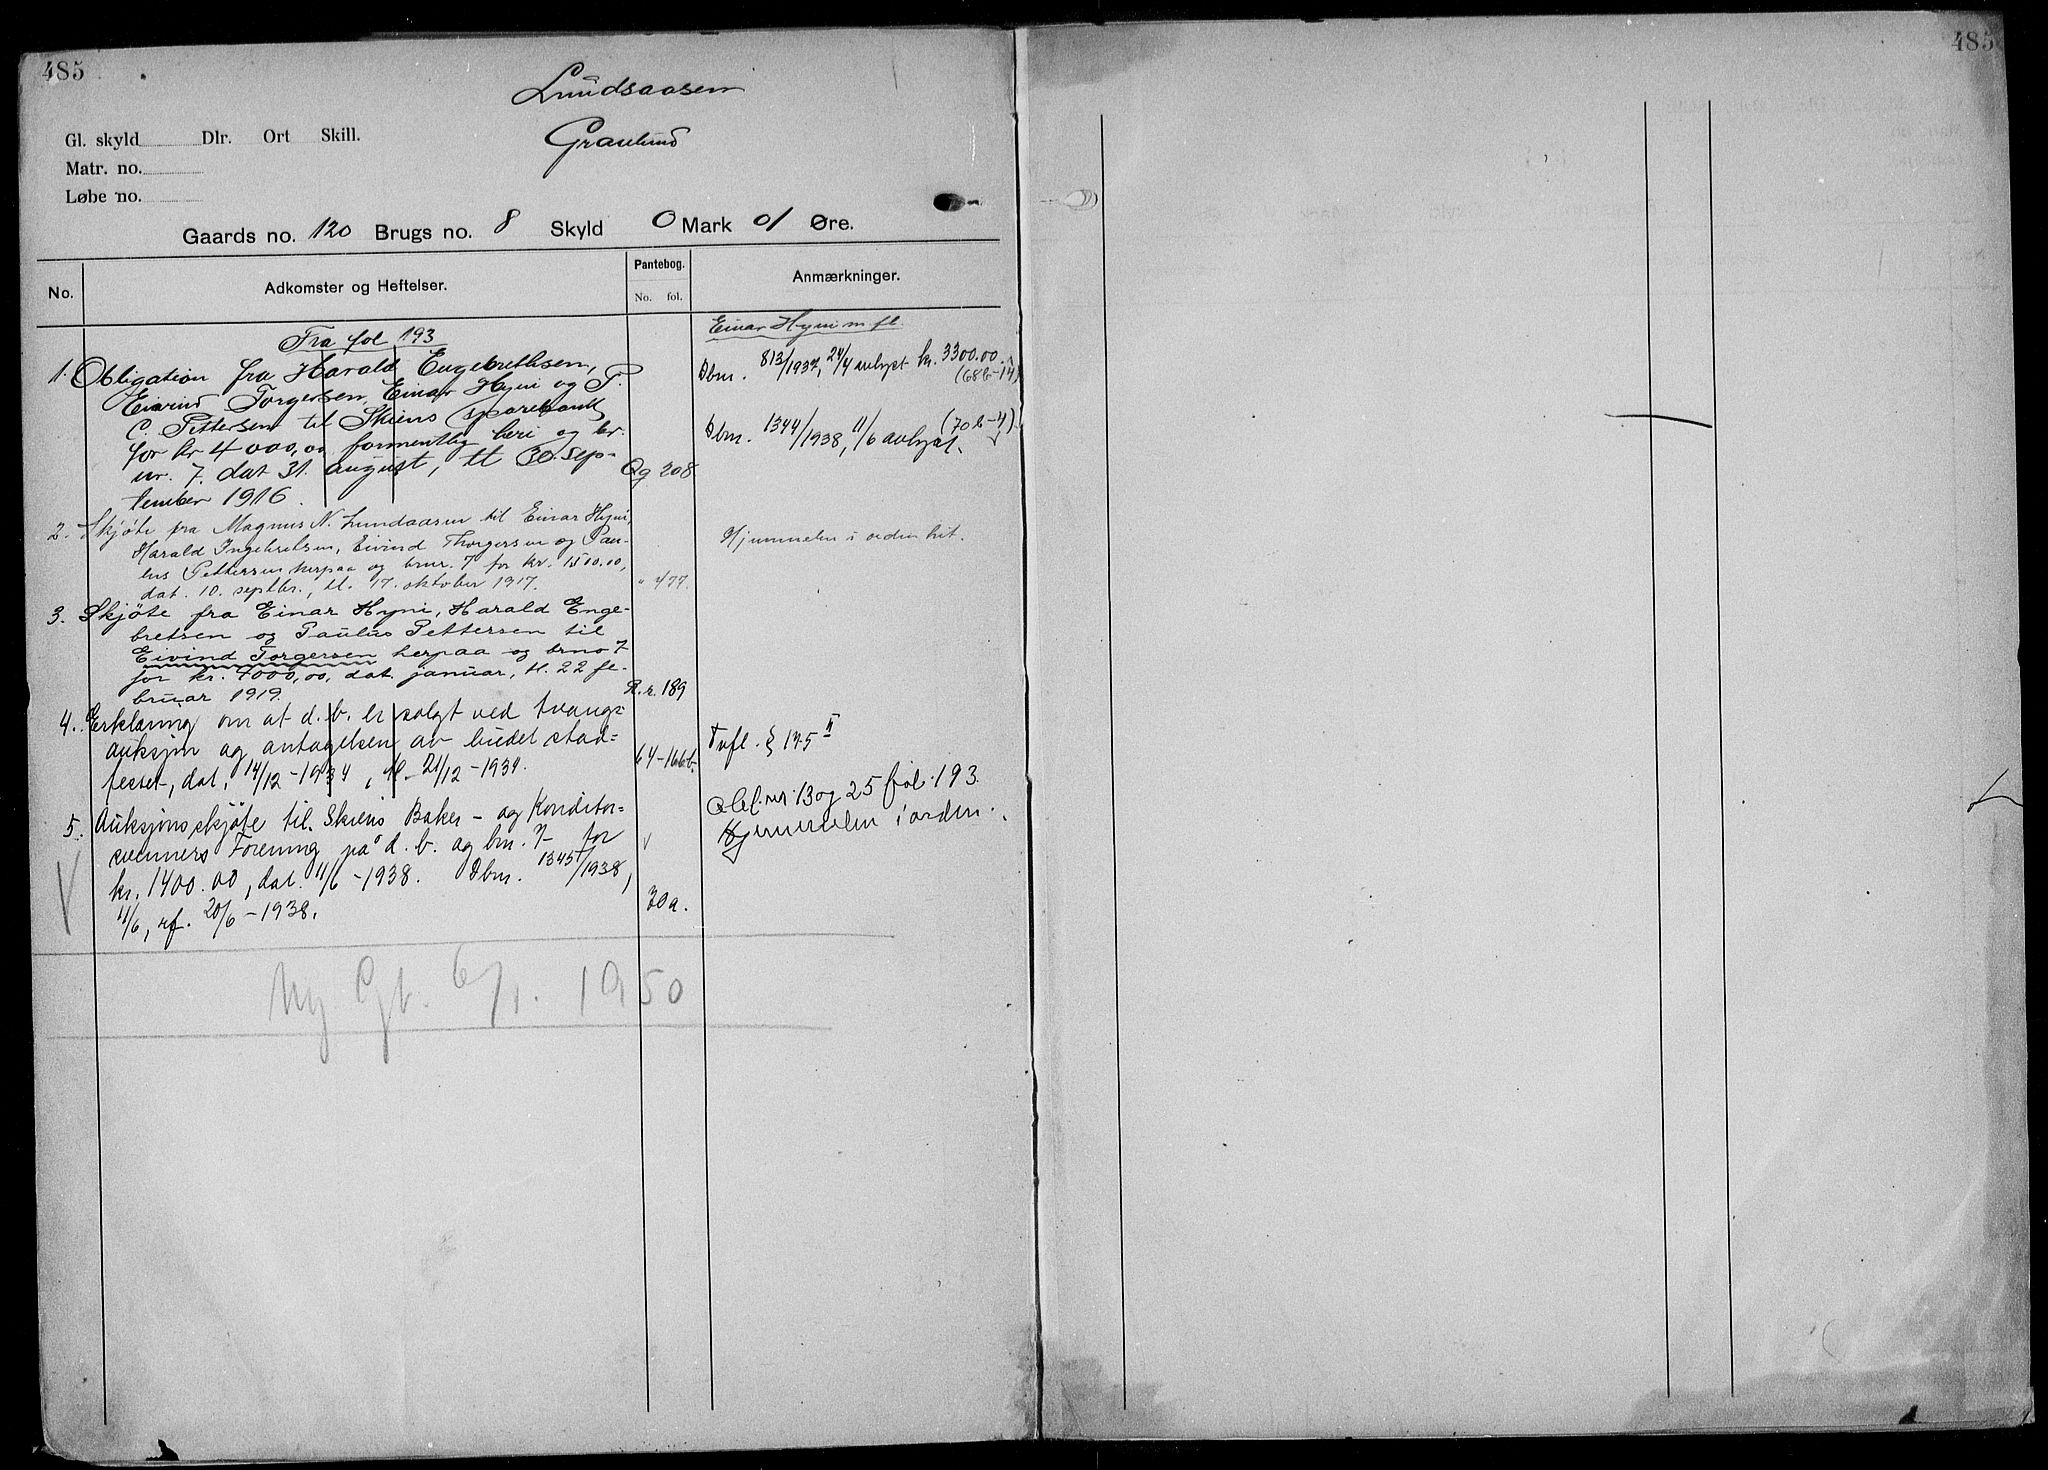 485
Lundsaasen
Granlund
Gl. skyld Dlr. Ort Skill.
Matr. no.
Løbe no.
Gaards no. 120 Brugs no. 8 Skyld 0 Mark 01 Øre.
No. Adkomster og Heftelser. Pantebog. No. fol. Anmærkninger.
Fra fol 193
1. Obligation fra Harald Engebrethsen,
Eivind Torgersen, Einar Hyni og P.
C. Pettersen til Skiens sparebank
for kr 4000,00 formentlig heri og br.
nr. 7. dat 31. august, tl 30. sep-
tember 1916. Qq 208
2. Skjøte fra Magnus N. Lundaasen til Einar Hyni,
Harald Ingebretsen, Eivind Thorgersen og Pau-
lus Pettersen herpaa og brnr. 7 for kr. 1500.00,
dat. 10. septbr., tl. 17. oktober 1917. " 477.
3. Skjøte fra Einar Hyni, Harald Enge-
bretsen og Paulus Pettersen til
Eivind Torgersen herpaa og brno 7
for kr. 4000,00, dat. januar, tl. 22 fe-
bruar 1919. R.r. 189
4. Erklæring om at d. b. er solgt ved tvangs=
auksjon og antagelsen av budet stad=
festet, dat. 14/12-1934, tl. 21/12-1934. 64-166b.
5. Auksjonsskjøte til Skiens Baker- og Konditor=
svenners Forening på d. b. og bnr. 7 for
kr. 1400.00, dat. 11/6-1938. Dbnr. 1345/1938,
11/6, rf. 20/6-1938. 70a.
Einar Hyni m. fl.
Dbnr. 813/1937, 24/4 avlyst kr. 3300.00.
(68b-14)
Dbnr. 1344/1938, 11/6 avlyst. (70b-4)
Hjemmelen i orden hit.
Tvfl. § 175 II
Obl. nr. 13 og 25 fol. 193.
Hjemmelen i orden.
Ny Gb. 6/1. 1950
485